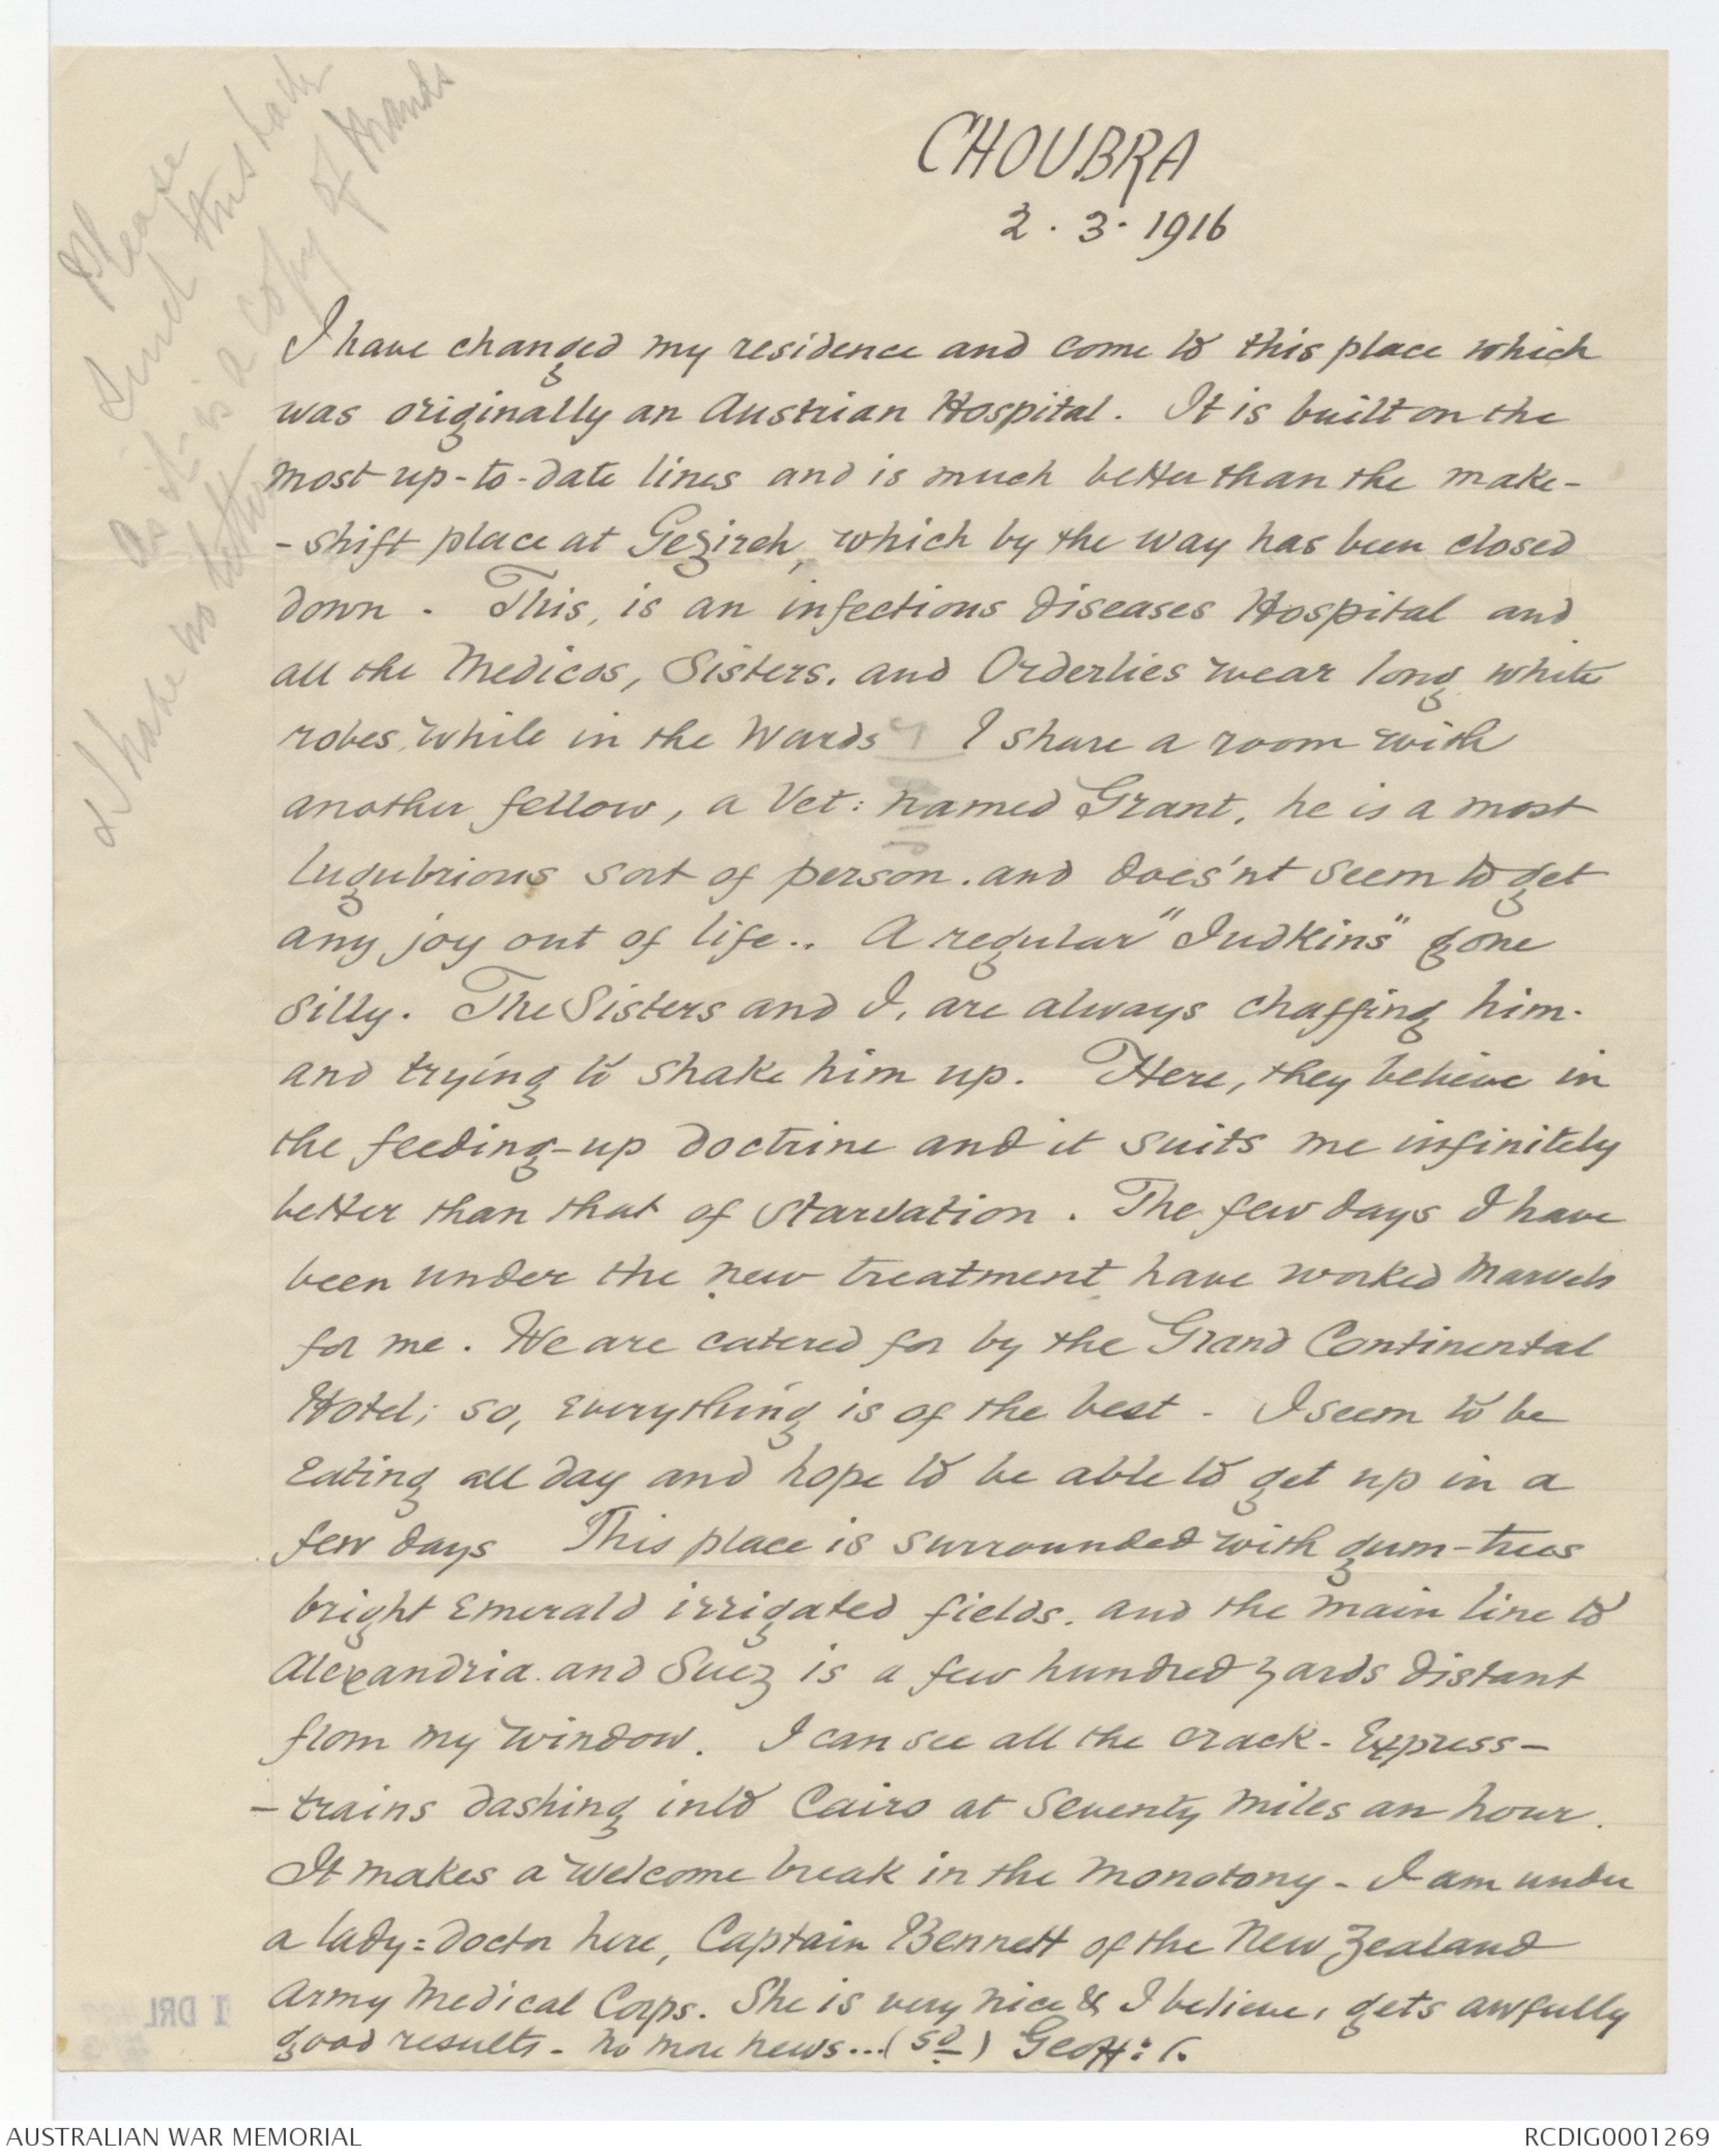 Please
send this back
as it is a copy of
I have no other
CHOUBRA
2 . 3 . 1916
I have changed my residence and come to this place which
was originally an Austrian Hospital. It is built on the
most up-to-date lines and is much better than the make-
-shift place at Gezireh, which by the way has been closed
down. This, is an infectious diseases Hospital and
all the Medicos, Sisters. and Orderlies wear long white
robes while in the Wards I share a room with
another fellow, a Vet: named Grant, he is a most
lugubrious sort of person. and does'nt seem to get
any joy out of life.. A regular "Judkins" gone
silly. The Sisters and I, are always chaffing him.
and trying to shake him up. Here, they believe in
the feeding-up doctrine and it suits me infinitely
better than that of starvation. The few days I have
been under the new treatment have worked marvels
for me. We are catered for by the Grand Continental
Hotel; so, everything is of the best - I seem to be
eating all day and hope to be able to get up in a
few days This place is surrounded with gum-trees
bright emerald irrigated fields. and the main line to
Alexandria. and Suez is a few hundred yards distant
from my window. I can see all the crack - Express-
-trains dashing into Cairo at seventy miles an hour.
It makes a welcome break in the monotony - I am under
a lady = doctor here, Captain Bennett of the New Zealand
Army Medical Corps. She is very nice & I believe, gets awfully
good results - no more news...(sd) Geoff:
1 DRL
AUSTRALIAN WAR MEMORIAL
RCDIG0001269